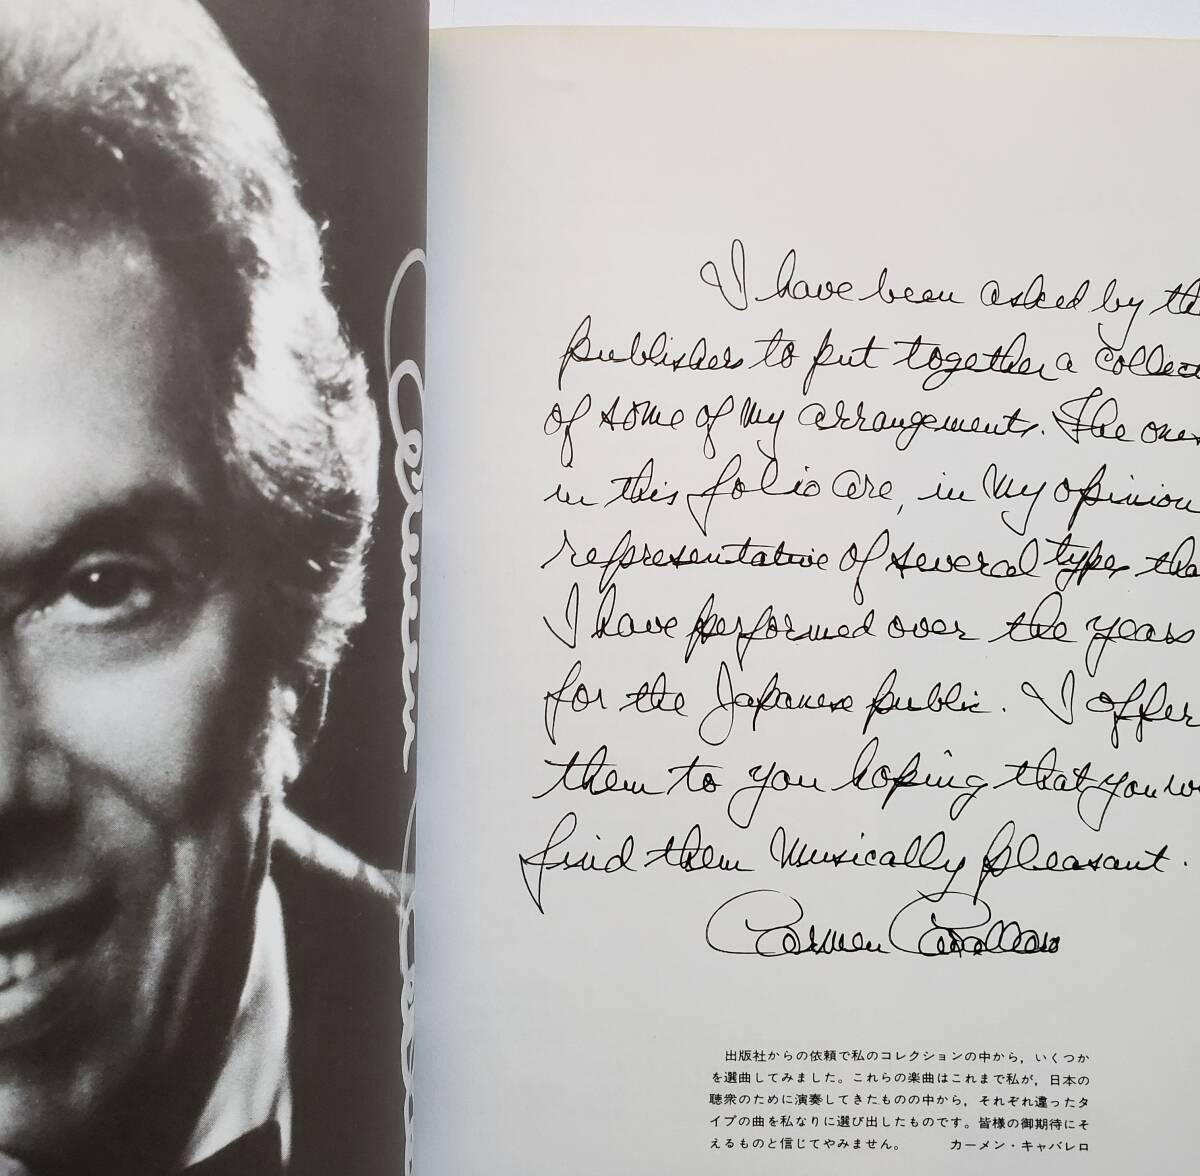 I have been asked by the
publishers to put together a collect
of some of my arrangements. The ones
in this folio are, in my opinion
representative of several types tha
I have performed over the years
for the Japanese public. I offer
them to you hoping that you w
find them musically pleasant.
Carmen Cavallaro
出版社からの依頼で私のコレクションの中から，いくつか
を選曲してみました。これらの楽曲はこれまで私が，日本の
聴衆のために演奏してきたものの中から，それぞれ違ったタ
イプの曲を私なりに選び出したものです。皆様の御期待にそ
えるものと信じてやみません。 カーメン・キャバレロ